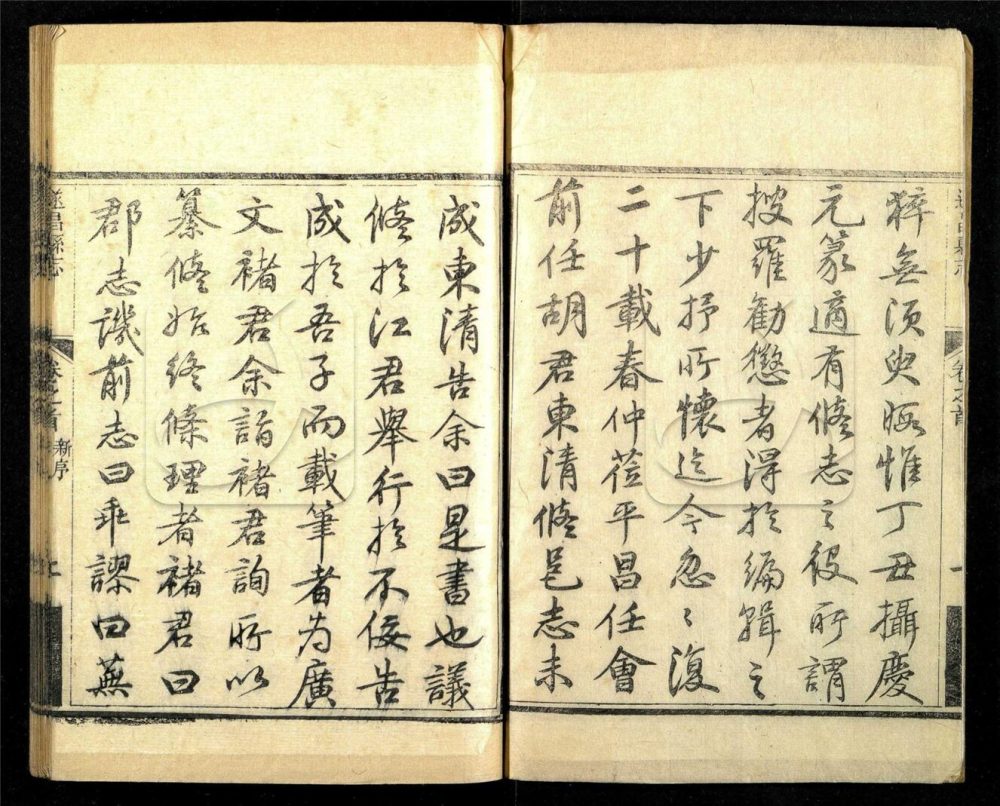 粹無須臾暇惟丁丑攝慶
元篆適有修志之役所謂
搜羅勸懲者得於編輯之
下少抒所懷迄今忽〻復
二十載春仲莅平昌任會
前任胡君東清修邑志未
卷之首
成東清告余曰是書也議
修於江君舉行於不佞告
成於吾子而載筆者為廣
文褚君余詣褚君詢所以
纂修始終條理者褚君曰
郡志譏前志曰乖謬曰蕪
遂昌縣志
卷之首 新序